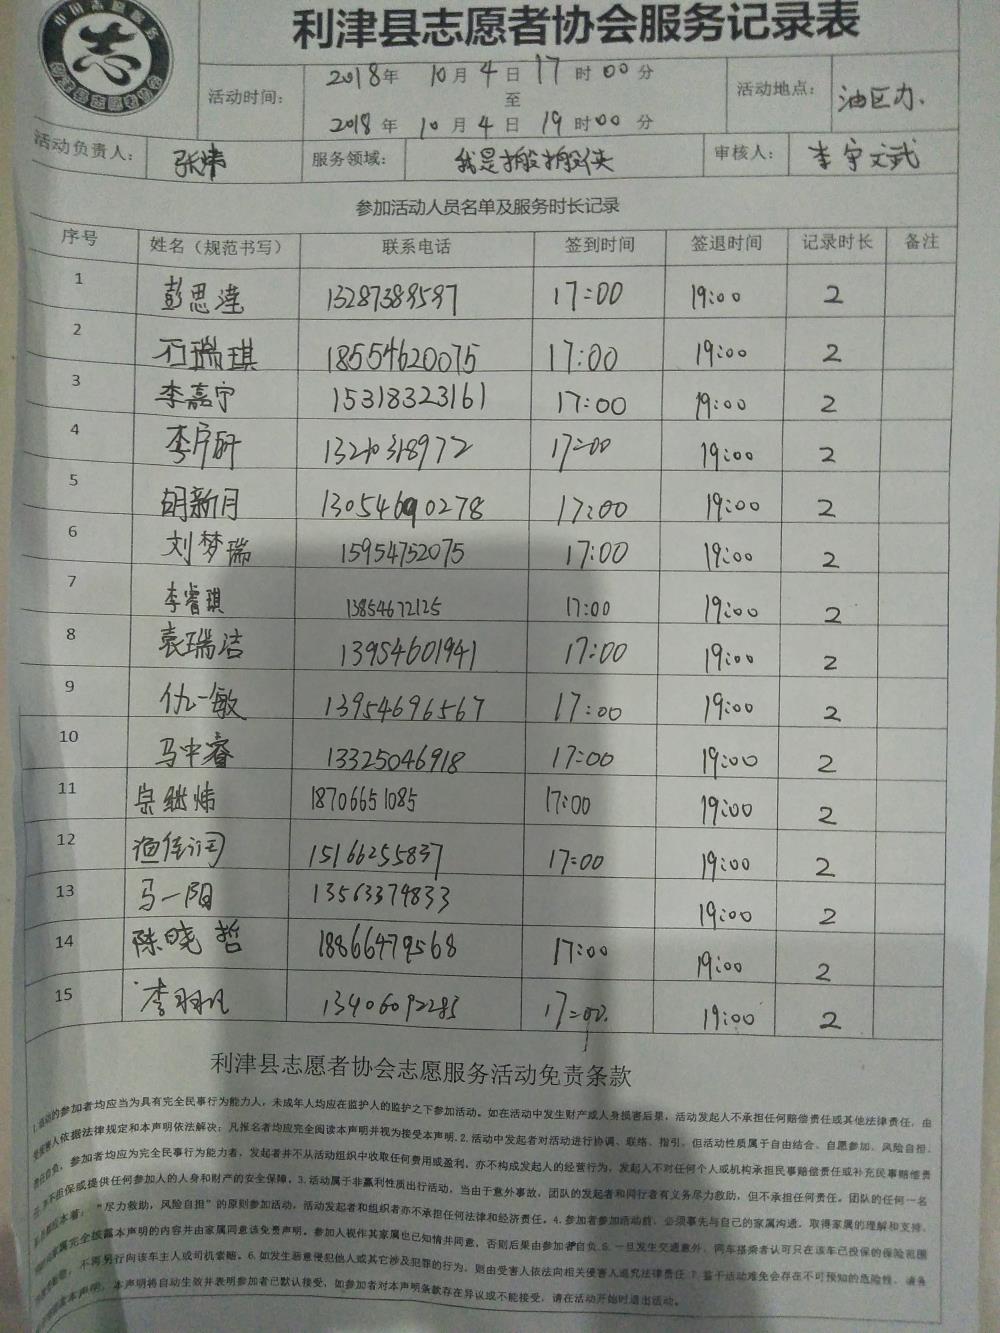 利津县志愿者协会服务记录表
中国志愿服务
志
活动时间:
2018年 10月4日17时00分
至
2018年10月4日19时00分
活动地点: 油区办.
活动负责人: 张炜 服务领域: 我是搬搬侠 审核人: 李宇文武
参加活动人员名单及服务时长记录
序号 姓名（规范书写） 联系电话 签到时间 签退时间 记录时长 备注
1 彭思滢 13287389597 17:00 19:00 2
2 石瑞琪 18554620075 17:00 19:00 2
3 李嘉宁 15318323161 17:00 19:00 2
4 17:00 19:00 2
5 胡新月 17:00 19:00 2
6 刘梦瑞 15954752075 17:00 19:00 2
7 李睿琪 13854672125 17:00 19:00 2
8 袁瑞洁 13954601941 17:00 19:00 2
9 仇一敏 13954696567 17:00 19:00 2
10 马中睿 13325046918 17:00 19:00 2
11 宗继炜 18706651085 17:00 19:00 2
12 15166255837 17:00 19:00 2
13 马一阳 13563379833 19:00 2
14 陈晓哲 18866479568 17:00 19:00 2
15 李羽凡 13406092285 17:00. 19:00 2
利津县志愿者协会志愿服务活动免责条款
1.活动的参加者均应当为具有完全民事行为能力人，未成年人均应在监护人的监护之下参加活动。如在活动中发生财产或人身损害后果，活动发起人不承担任何赔偿责任或其他法律责任，由
受害人依据法律规定和本声明依法解决；凡报名者均应完全阅读本声明并视为接受本声明.2.活动中发起者对活动进行协调、联络、指引。但活动性质属于自由结合、自愿参加、风险自担、
责任自负，参加者均应为完全民事行为能力者，发起者并不从活动组织中收取任何费用或盈利，亦不构成发起人的经营行为，发起人不对任何个人或机构承担民事赔偿责任或补充民事赔偿责
任,亦不担保或提供任何参加人的人身和财产的安全保障。3.活动属于非赢利性质出行活动，当由于意外事故，团队的发起者和同行者有义务尽力救助，但不承担任何责任。团队的任何一名
“尽力救助，风险自担”的原则参加活动，活动发起者和组织者亦不承担任何法律和经济责任。4.参加者参加活动前，必须事先与自己的家属沟通，取得家属的理解和支持、
家属完全披露本声明的内容并由家属同意该免责声明。参加人视作其家属也已知情并同意，否则后果由参加者自负.5.一旦发生交通意外，同车搭乘者认可只在该车已投保的保险范围
不再另行向该车主人或司机索赔。6.如发生恶意侵犯他人或其它涉及犯罪的行为，则由受害人依法向相关侵害人追究法律责任.7.鉴于活动难免会存在不可预知的危险性，请务
本声明，本声明将自动生效并表明参加者已默认接受，如参加者对本声明条款存在异议或不能接受，请在活动开始时退出活动。